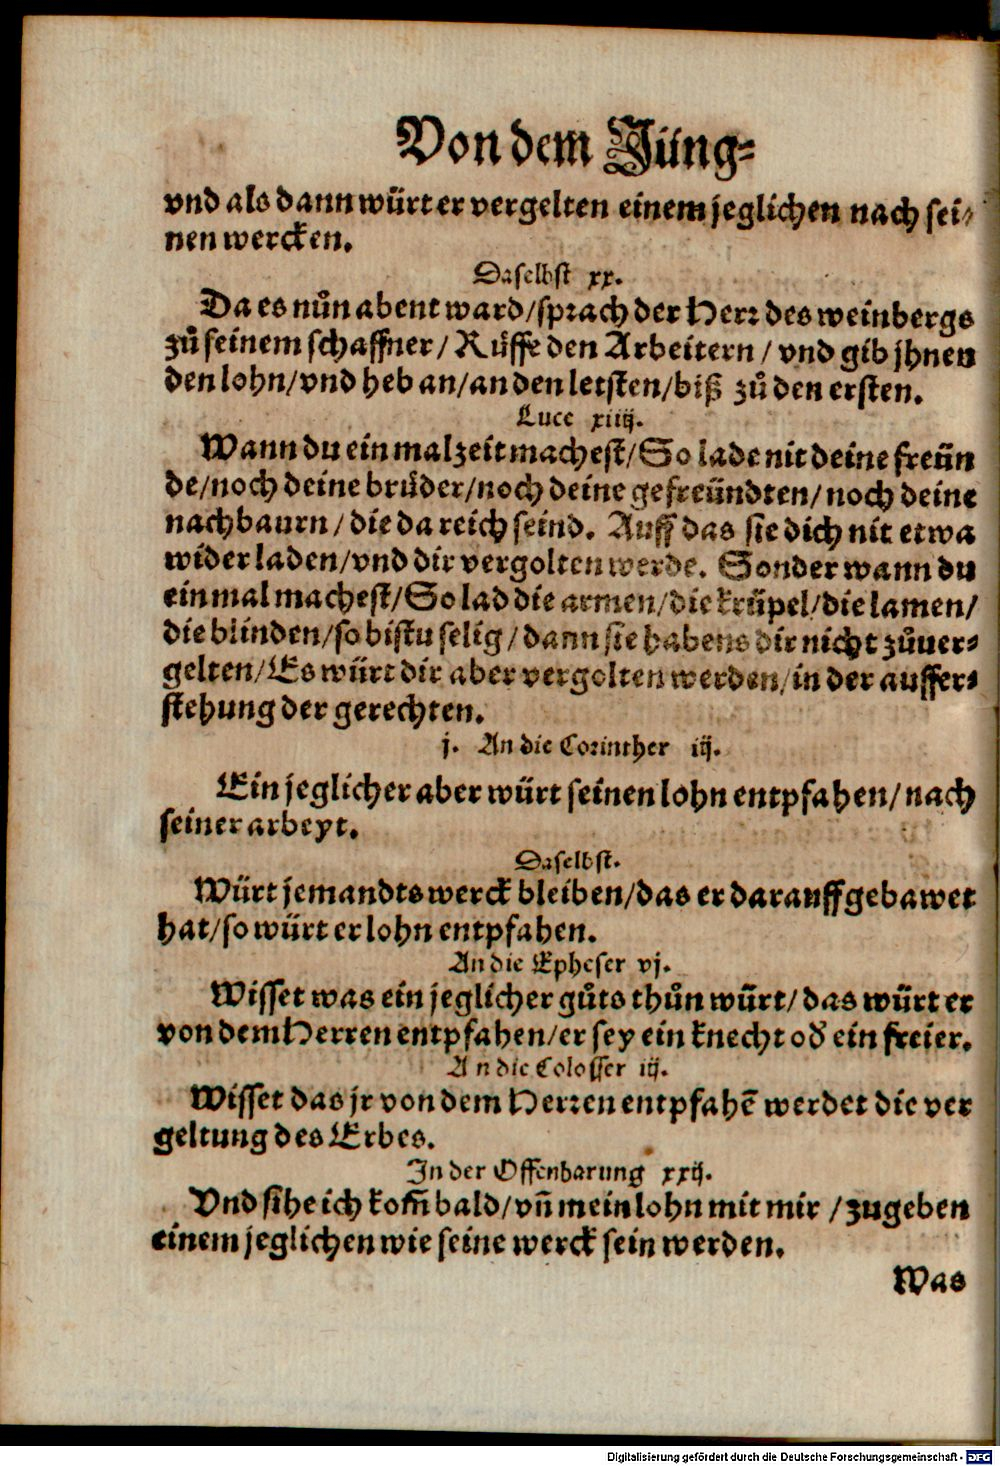 Von dem Jüng⸗
vnd als dann würt er vergelten einem jeglichen nach sei⸗
nen wercken.
Daselbst xx.
Da es nůn abent ward/sprach der Herr des weinbergs
zů seinem schaffner/ Růffe den Arbeitern/ vnd gib jhnen
den lohn/vnd heb an/an den letsten/biß zů den ersten.
Luce xiiij.
Wann du ein malzeit machest/So lade nit deine freün
de/noch deine brůder/noch deine gefreündten/noch deine
nachbaurn/die da reich seind. Auff das sie dich nit etwa
wider laden/vnd dir vergolten werde. Sonder wann du
ein mal machest/So lad die armen/die krüpel/die lamen/
die blinden/so bistu selig/dann sie habens dir nicht zůuer⸗
gelten/Es würt dir aber vergolten werden/in der auffer⸗
stehung der gerechten.
j. An die Corinther iij.
Ein jeglicher aber würt seinen lohn entpfahen/nach
seiner arbeyt.
Daselbst.
Würt jemandts werck bleiben/das er darauff gebawet
hat/so würt er lohn entpfahen.
An die Epheser vj.
Wisset was ein jeglicher gůts thůn würt/das würt er
von dem Herren entpfahen/er sey ein knecht od̕ ein freier.
An die Colosser iij.
Wisset das jr von dem Herren entpfahē werdet die ver
geltung des Erbes.
In der Offenbarung xxij.
Vnd sihe ich kom̄ bald/vn̄ mein lohn mit mir/zugeben
einem jeglichen wie seine werck sein werden.
Was
Digitalisierung gefördert durch die Deutsche Forschungsgemeinschaft - DFG